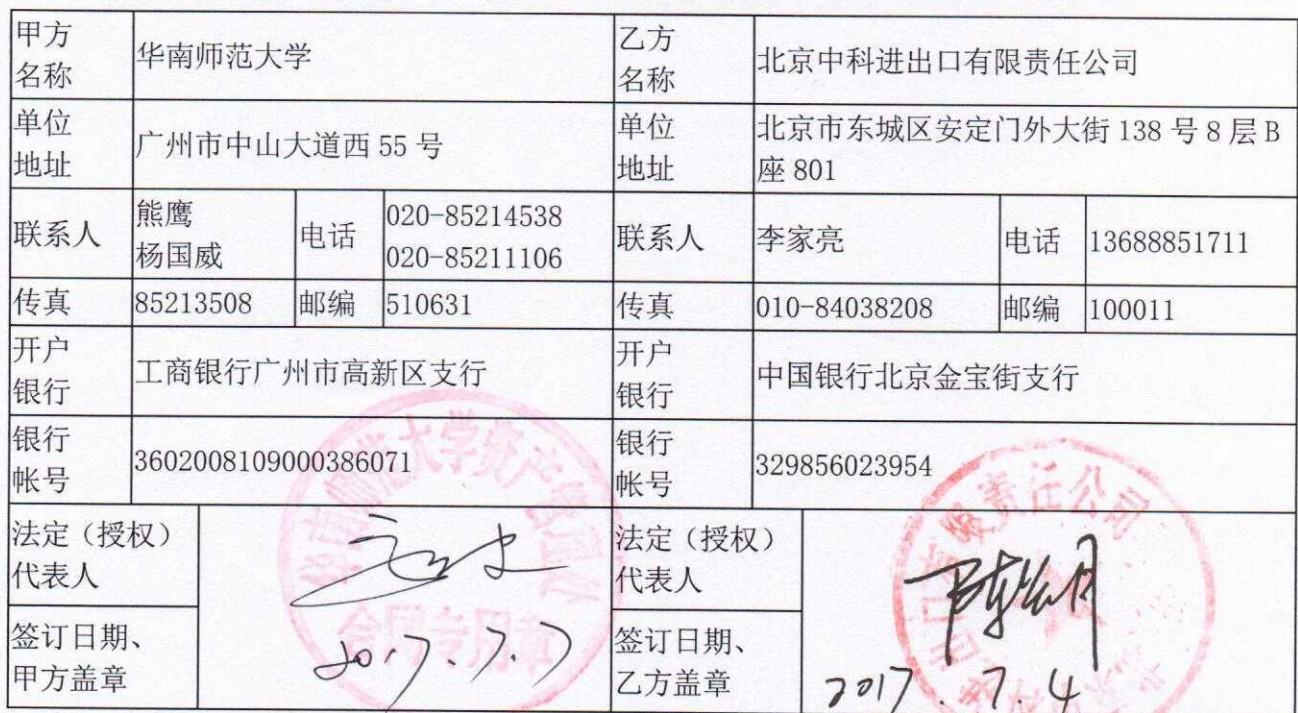 甲方
名称
华南师范大学
乙方
名称
北京中科进出口有限责任公司
单位
地址
广州市中山大道西 55 号
单位
地址
北京市东城区安定门外大街 138 号 8 层 B
座 801
联系人
熊鹰
杨国威
电话
020-85214538
020-85211106
联系人
李家亮
电话
13688851711
传真
85213508
邮编
510631
传真
010-84038208
邮编
100011
开户
银行
工商银行广州市高新区支行
开户
银行
中国银行北京金宝街支行
银行
帐号
3602008109000386071
银行
帐号
329856023954
法定（授权）
代表人
法定（授权）
代表人
签订日期、
甲方盖章
2017.7.7
签订日期、
乙方盖章
2017.7.4
合同专用章